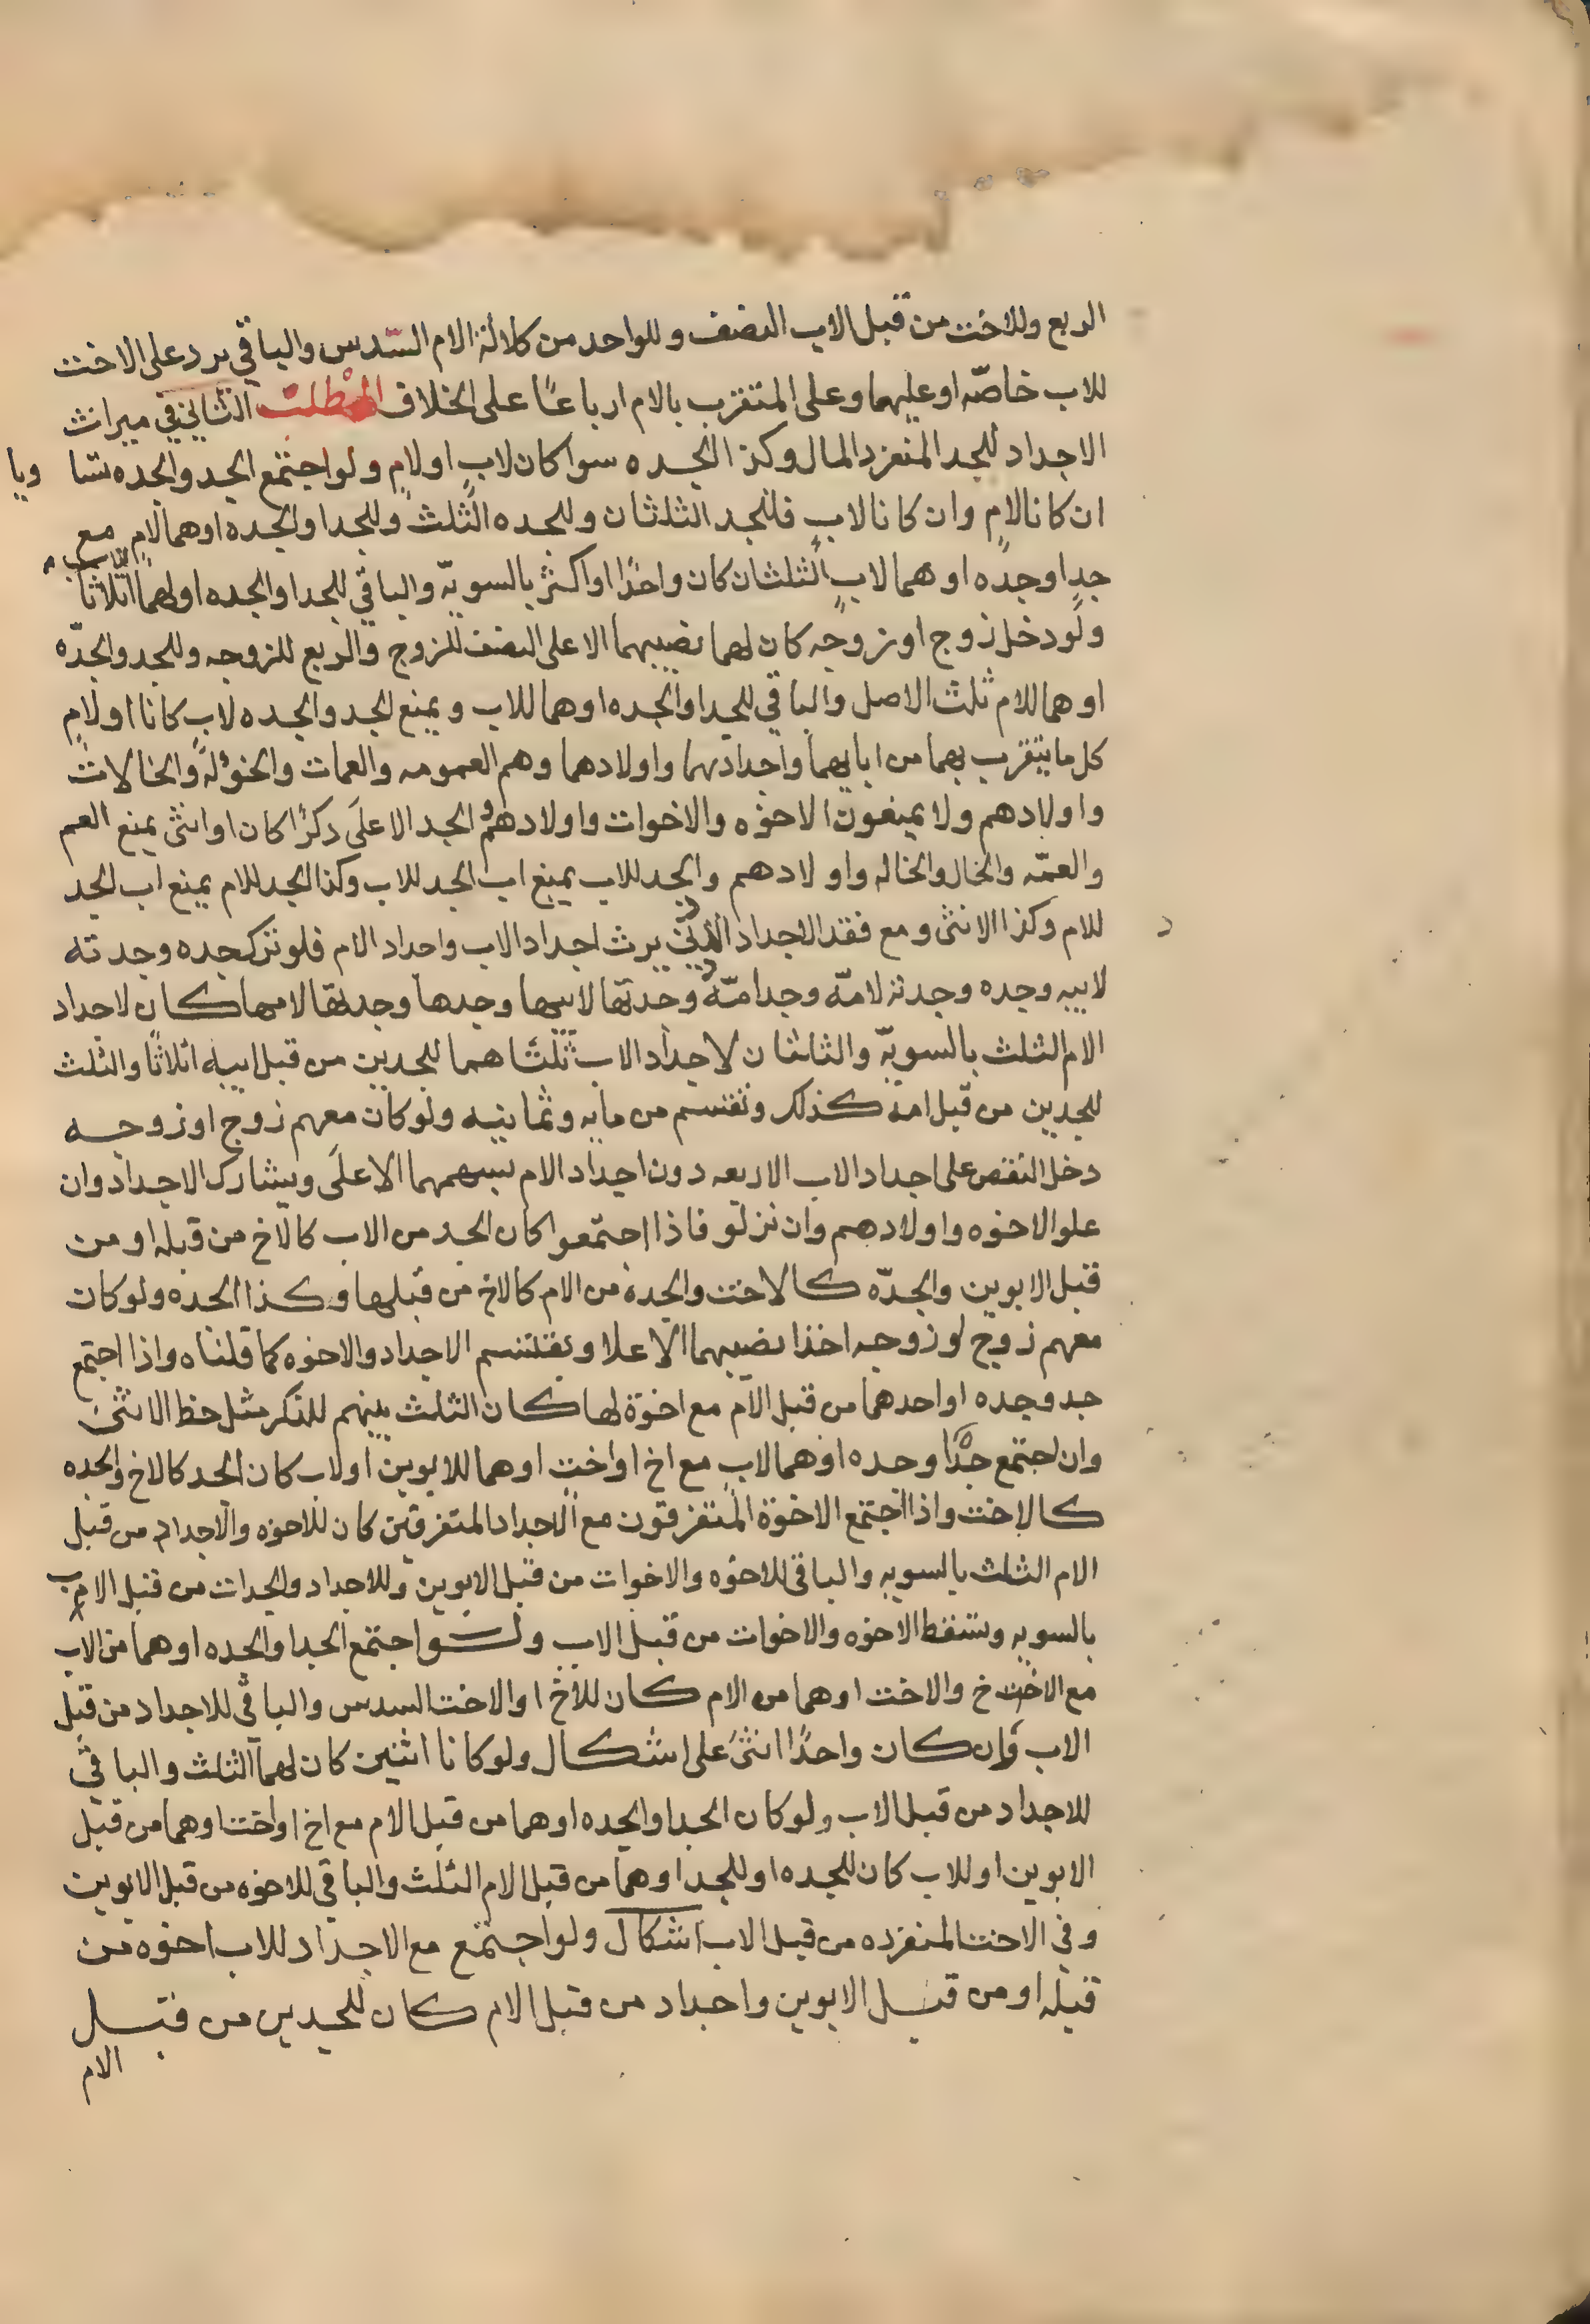 الربع وللاخت من قبل الاب النصف وللواحد من كلالة الام السّدس والباقي يرد على الاخت
للاب خاصّه او عليهما وعلى المتقرب بالام ارباعًا على الخلاف المطلب الثاني في ميراث
الاجداد للجد المنفرد المال وكذا الجده سوا كان لابٍ او لامٍ ولو اجتمع الجد والجده تسا ويا
ان كانا لامٍ وان كانا لابٍ فللجد الثلثان وللجده الثلث وللجد او الجده او هما لامٍ مع
جدٍ او جده او هما لابٍ الثلث ان كان واحدًا او اكثر بالسويّه والباقي للجد او الجده او لهما اثلاثًا
ولو دخل زوج او زوجه كان لهما نصيبهما الاعلى النصف للزوج والربع للزوجه وللجد والجدّه
او هما للام ثلث الاصل والباقي للجد او الجده او هما للاب ويمنع الجد والجده لابٍ كانا او لامٍ
كل ما يتقرب بهما من ابايهما واجدادهما واولادهما وهم العمومه والعمات والخؤلة والخالات
واولادهم ولا يمنعون الاخوه والاخوات واولادهم و الجد الاعلى ذكرًا كان او انثى يمنع العم
والعمّه والخال والخاله واولادهم والجد للاب يمنع اب الجد للاب وكذا الجد للام يمنع اب الجد
للام وكذا الانثى ومع فقد الاجداد الدنيّ يرث اجداد الاب واجداد الام فلو ترك جده وجدته
لابيه وجده وجدته لامّه وجد امّه وجدتها لابيها وجدها وجدتها لامها كان لاجداد
الام الثلث بالسويّه والثلثان لاجداد الاب ثلثاهما للجدين من قبل ابيه اثلاثًا والثلث
للجدين من قبل امه كذلك وتقسم من مايه وثمانيه ولو كان معهم زوج او زوجه
دخل النقص على اجداد الاب الاربعه دون اجداد الام بسهمهما الاعلى ويشارك الاجداد وان
علو الاخوه واولادهم وان نزلو فاذا اجتمعوا كان الجد من الاب كالاخ من قبله او من
قبل الابوين والجدّه كالاخت والجده من الام كالاخ من قبلها وكذا الجده ولو كان
معهم زوج او زوجه اخذا نصيبهما الاعلا ويقتسم الاجداد والاخوه كما قلناه واذا اجتمع
جد وجده او احدهما من قبل الام مع اخوة لها كان الثلث بينهم للذكر مثل حظ الانثى
وان اجتمع جدًا وجده او هما لابٍ مع اخ او اخت او هما للابوين او لاب كان الجد كالاخ والجده
كالاخت واذا اجتمع الاخوة المتفرقون مع الاجداد المتفرقين كان للاخوه والاجداد من قبل
الام الثلث بالسويه والباقي للاخوه والاخوات من قبل الابوين وللاجداد والجدات من قبل الام
بالسويه وتسقط الاخوه والاخوات من قبل الاب ولو اجتمع الجد او الجده او هما من الاب
مع الاخ والاخت او هما من الام كان للاخ او الاخت السدس والباقي للاجداد من قبل
الاب وان كان واحدًا انثى على اشكال ولو كانا اثنين كان لهما الثلث والباقي
للاجداد من قبل الاب ولو كان الجد او الجده او هما من قبل الام مع اخ او اخت او هما من قبل
الابوين او للاب كان للجده او للجد او هما من قبل الام الثلث والباقي للاخوه من قبل الابوين
وفي الاخت المنفرده من قبل الاب اشكال ولو اجتمع مع الاجداد للاب اخوه من
قبله او من قبل الابوين واجداد من قبل الام كان للجدين من قبل
الام